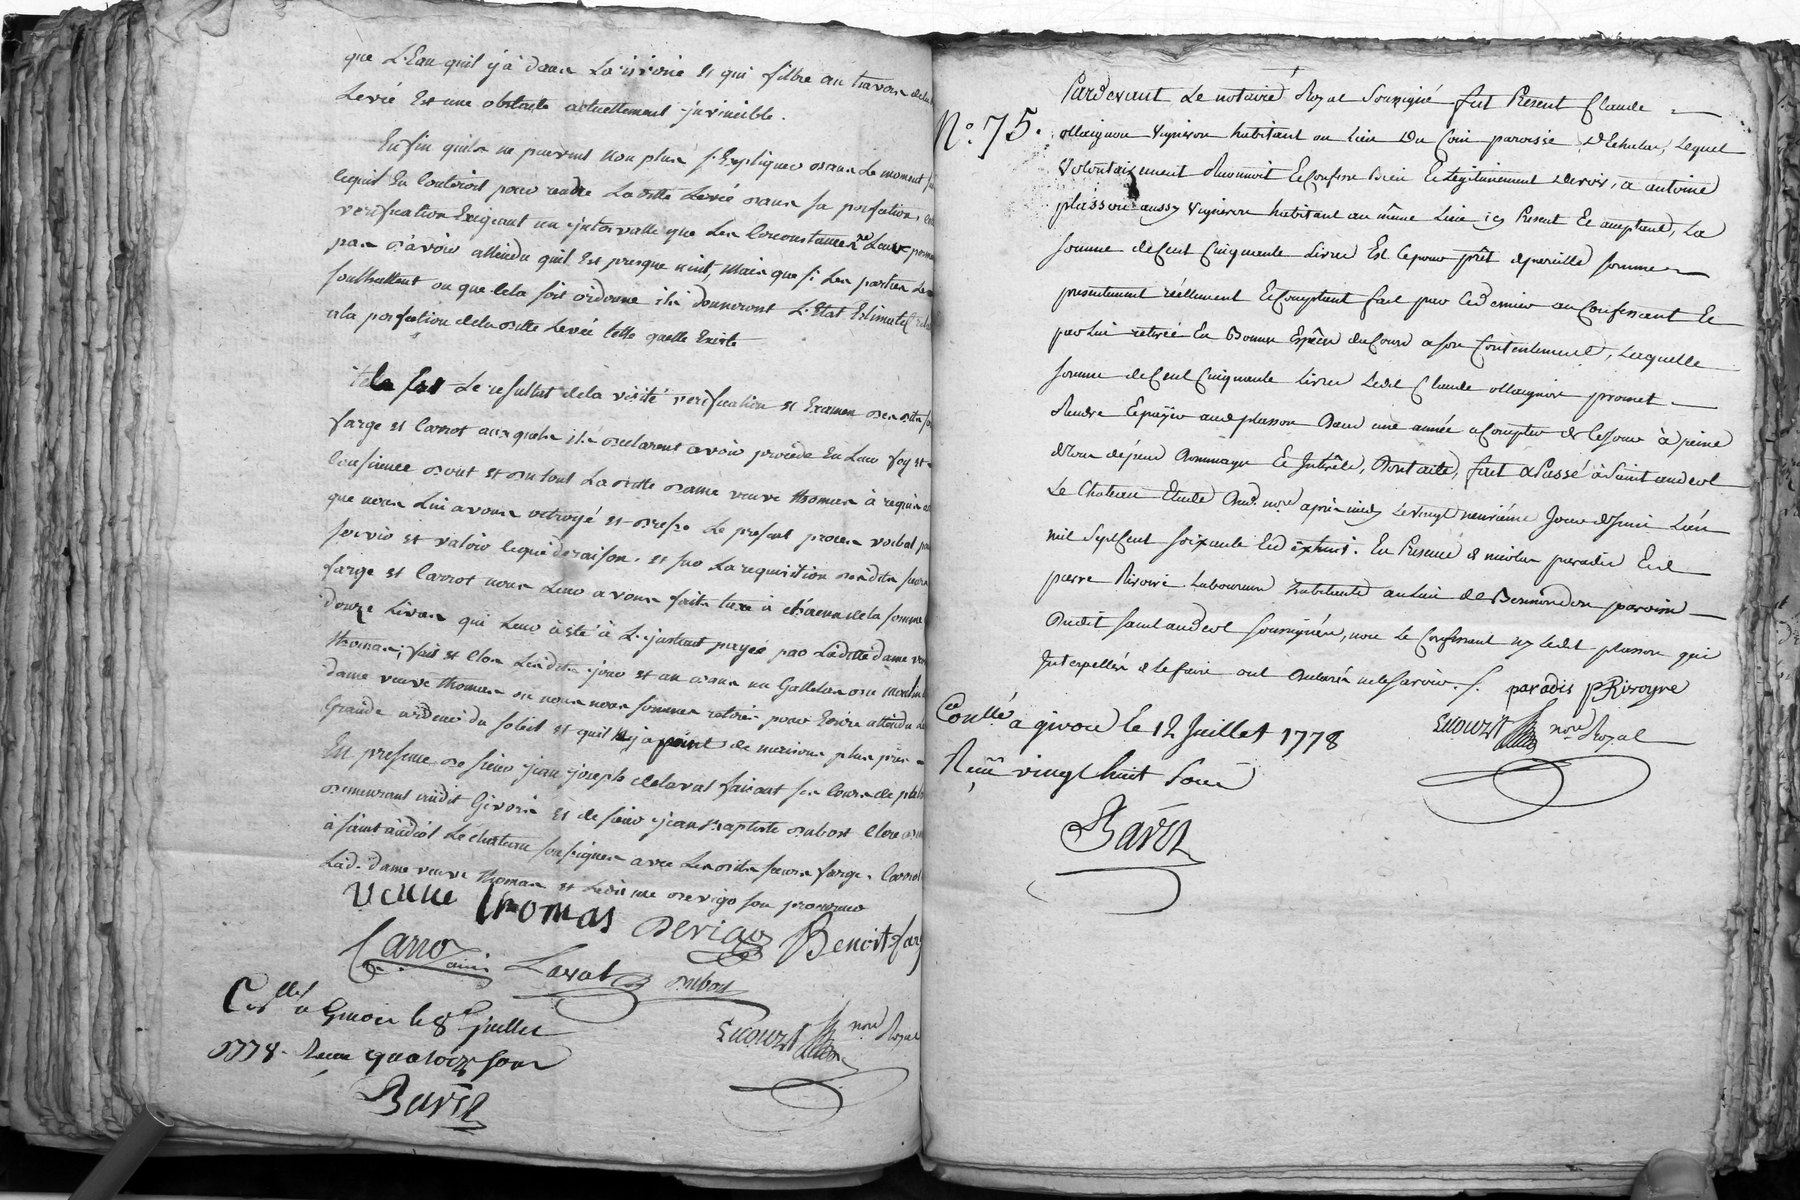 que L'Eau quil y a dans La riviere et qui filtre au travers de la
Levée Est une obstacle actuellement invincible.
Enfin quils ne peuvent non plus s'Expliquer dans Le moment sur
lequil En Couteroit pour rendre Laditte Levée dans sa perfection,
verification Exigeant un intervalle que Les Circonstances ne Leur permet
pas d'avoir attendu quil Est presque nuit, Mais que si Les parties Le
souhaittent ou que Cela soit ordonné ils donneront L'Etat Estimatif
a la perfection de la ditte Levée telle quelle Existe
Tel est Le resultat de la visitte verification et Examen desdits srs
farge et Carrot auxquels ils declarent avoir procédé En Leur foy et
Conscience dont et du tout Laditte dame veuve thomas à requis acte
que nous Lui avons octroyé et dressé Le present procès verbal pour
servir et valoir ce que de raison, et sur La requisition desdits sieurs
farge et Carrot nous Leur avons fait taxe à chacun de la somme
douze Livres qui Leur à été à L'instant payée par Laditte dame veuve
thomas, fait et Clos Lesdits jour et an dans un Galletas du moulin
dame veuve thomas ou nous nous sommes retirés pour Ecrire attendu la
Grande ardeur du soleil et quil ny a point de maisons plus près
En presence de sieur jean joseph delaval faisant ses Cours de
demeurant audit Givors et de sieur jean Baptiste dubost Clerc
à saint andéol Le chateau soussignés avec Lesdits sieurs farge, Carrot
Lad. dame veuve thomas et Ledit me derigo son procureur
veuve thomas derigo Benoit far
Carro ainé Laval dubost
Enouzt nore Royal
Conllé à Givors le 8e juillet
1778. Reçu quatorze sous
Barot
No. 75.
Pardevant Le notaire Royal Soussigné fut Present Claude
ollaignon Vigneron habitant au Lieu Du Coin paroisse D'Echalas, Lequel
Volontairement Reconnoit Et Confesse Bien Et Legitimement Devoir, a antoine
plasson aussy Vigneron habitant au même Lieu icy Present Et acceptant, La
somme de Cent Cinquante Livres Est Ce pour prêt de pareille somme
presentement réellement Et Comptant fait par Ce dernier au Confessant Et
par Lui retirée En Bonnes Espèces du Cours a son Contentement, Laquelle
somme de Cent Cinquante Livres Ledit Claude ollaignon promet
Rendre Et payer aud plasson Dans une année a Compter de Ce Jour à peine
de tous dépens Dommages Et Interêts, Dont acte, fait & Passé à Saint andeol
Le Chateau Etude Dud. nore après midy Le vingt neuvième Jour de Juin L'an
mil Sept Cent soixante Et dix huit. En Presence de nicolas paradis Et de
pierre Rivoire Laboureurs Habitants au Lieu de Bermondon paroisse
Dudit saint andeol soussignés, non Le Confessant ny Ledit plasson qui
Interpellés de le faire ont Declaré ne le savoir. /. paradis PRivoyre
Enouzt nore Royal
Conllé à givors le 12 Juillet 1778
Reçu vingt huit sous
Barot